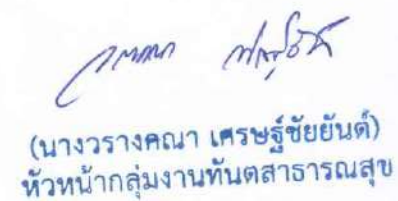 (นางวรางคณา เศรษฐ์ชัยยันต์)
หัวหน้ากลุ่มงานทันตสาธารณสุข